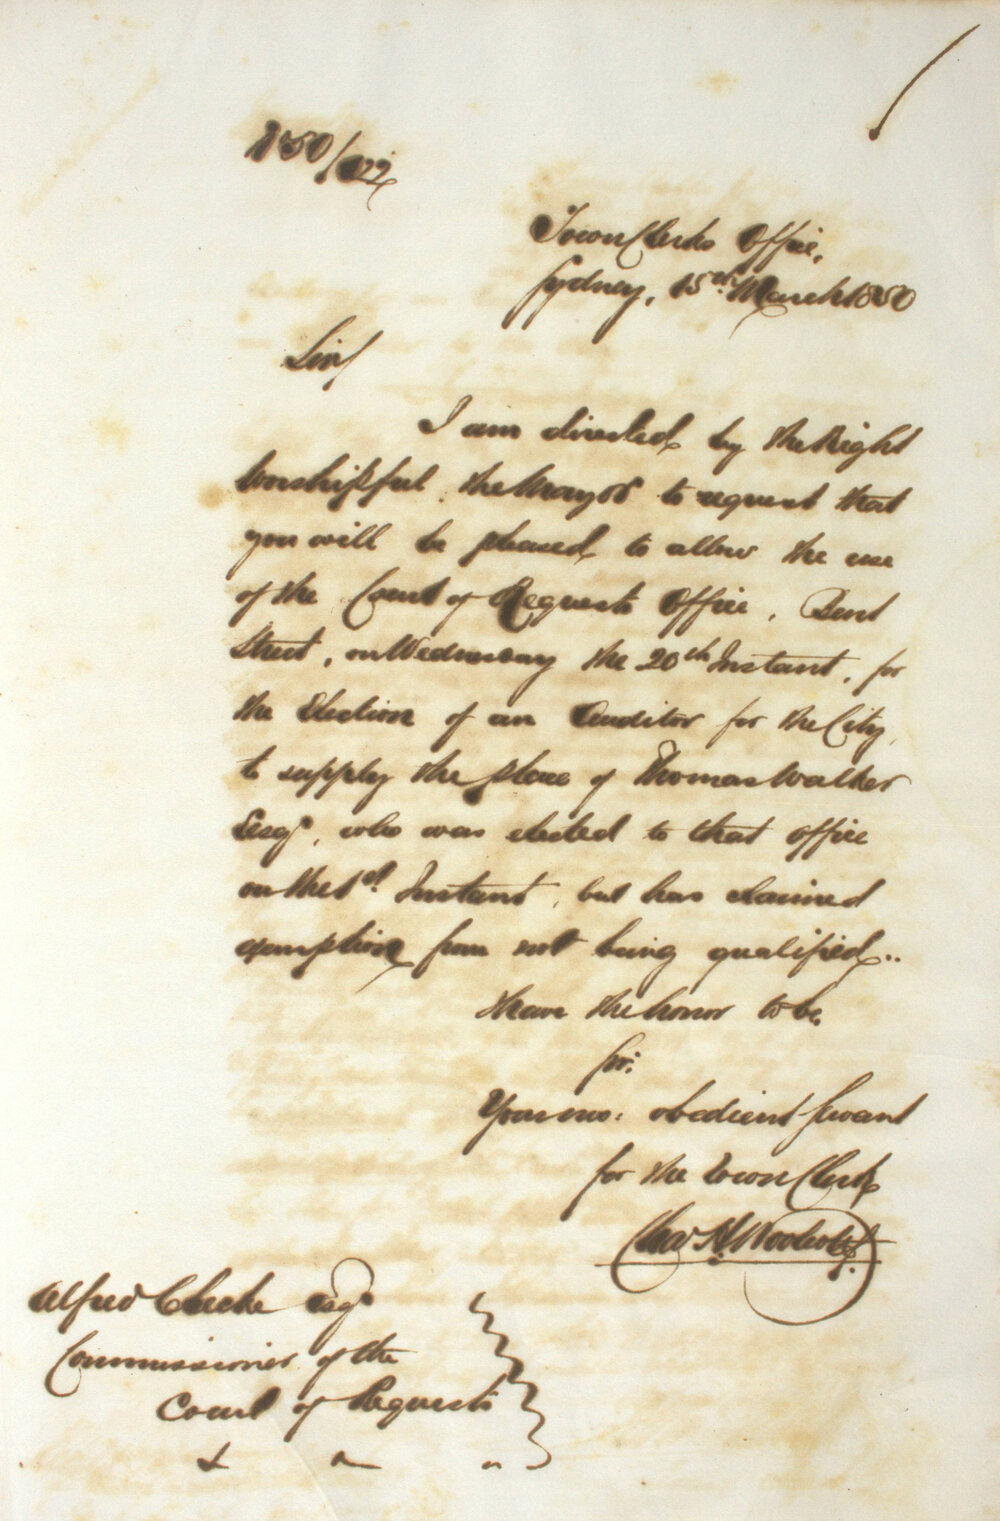 1850/122
Town Clerks Office,
Sydney, 15th March 1850
Sir/
I am directed by the Right
Worshipful the Mayor to request that
you will be pleased to allow the use
of the Court of Requests Office, Bent
Street, on Wednesday the 20th Instant, for
the Election of an Auditor for the City,
to supply the place of Thomas Walker
Esqr, who was elected to that office
on the 1st Instant, but has claimed
exemption from not being qualified..
I have the honor to be,
Sir:
Your mo: obedient Servant
for the Town Clerk
Chas H Woolcott
Alfred Cheeke Esqr
Commissioner of the
Court of Requests